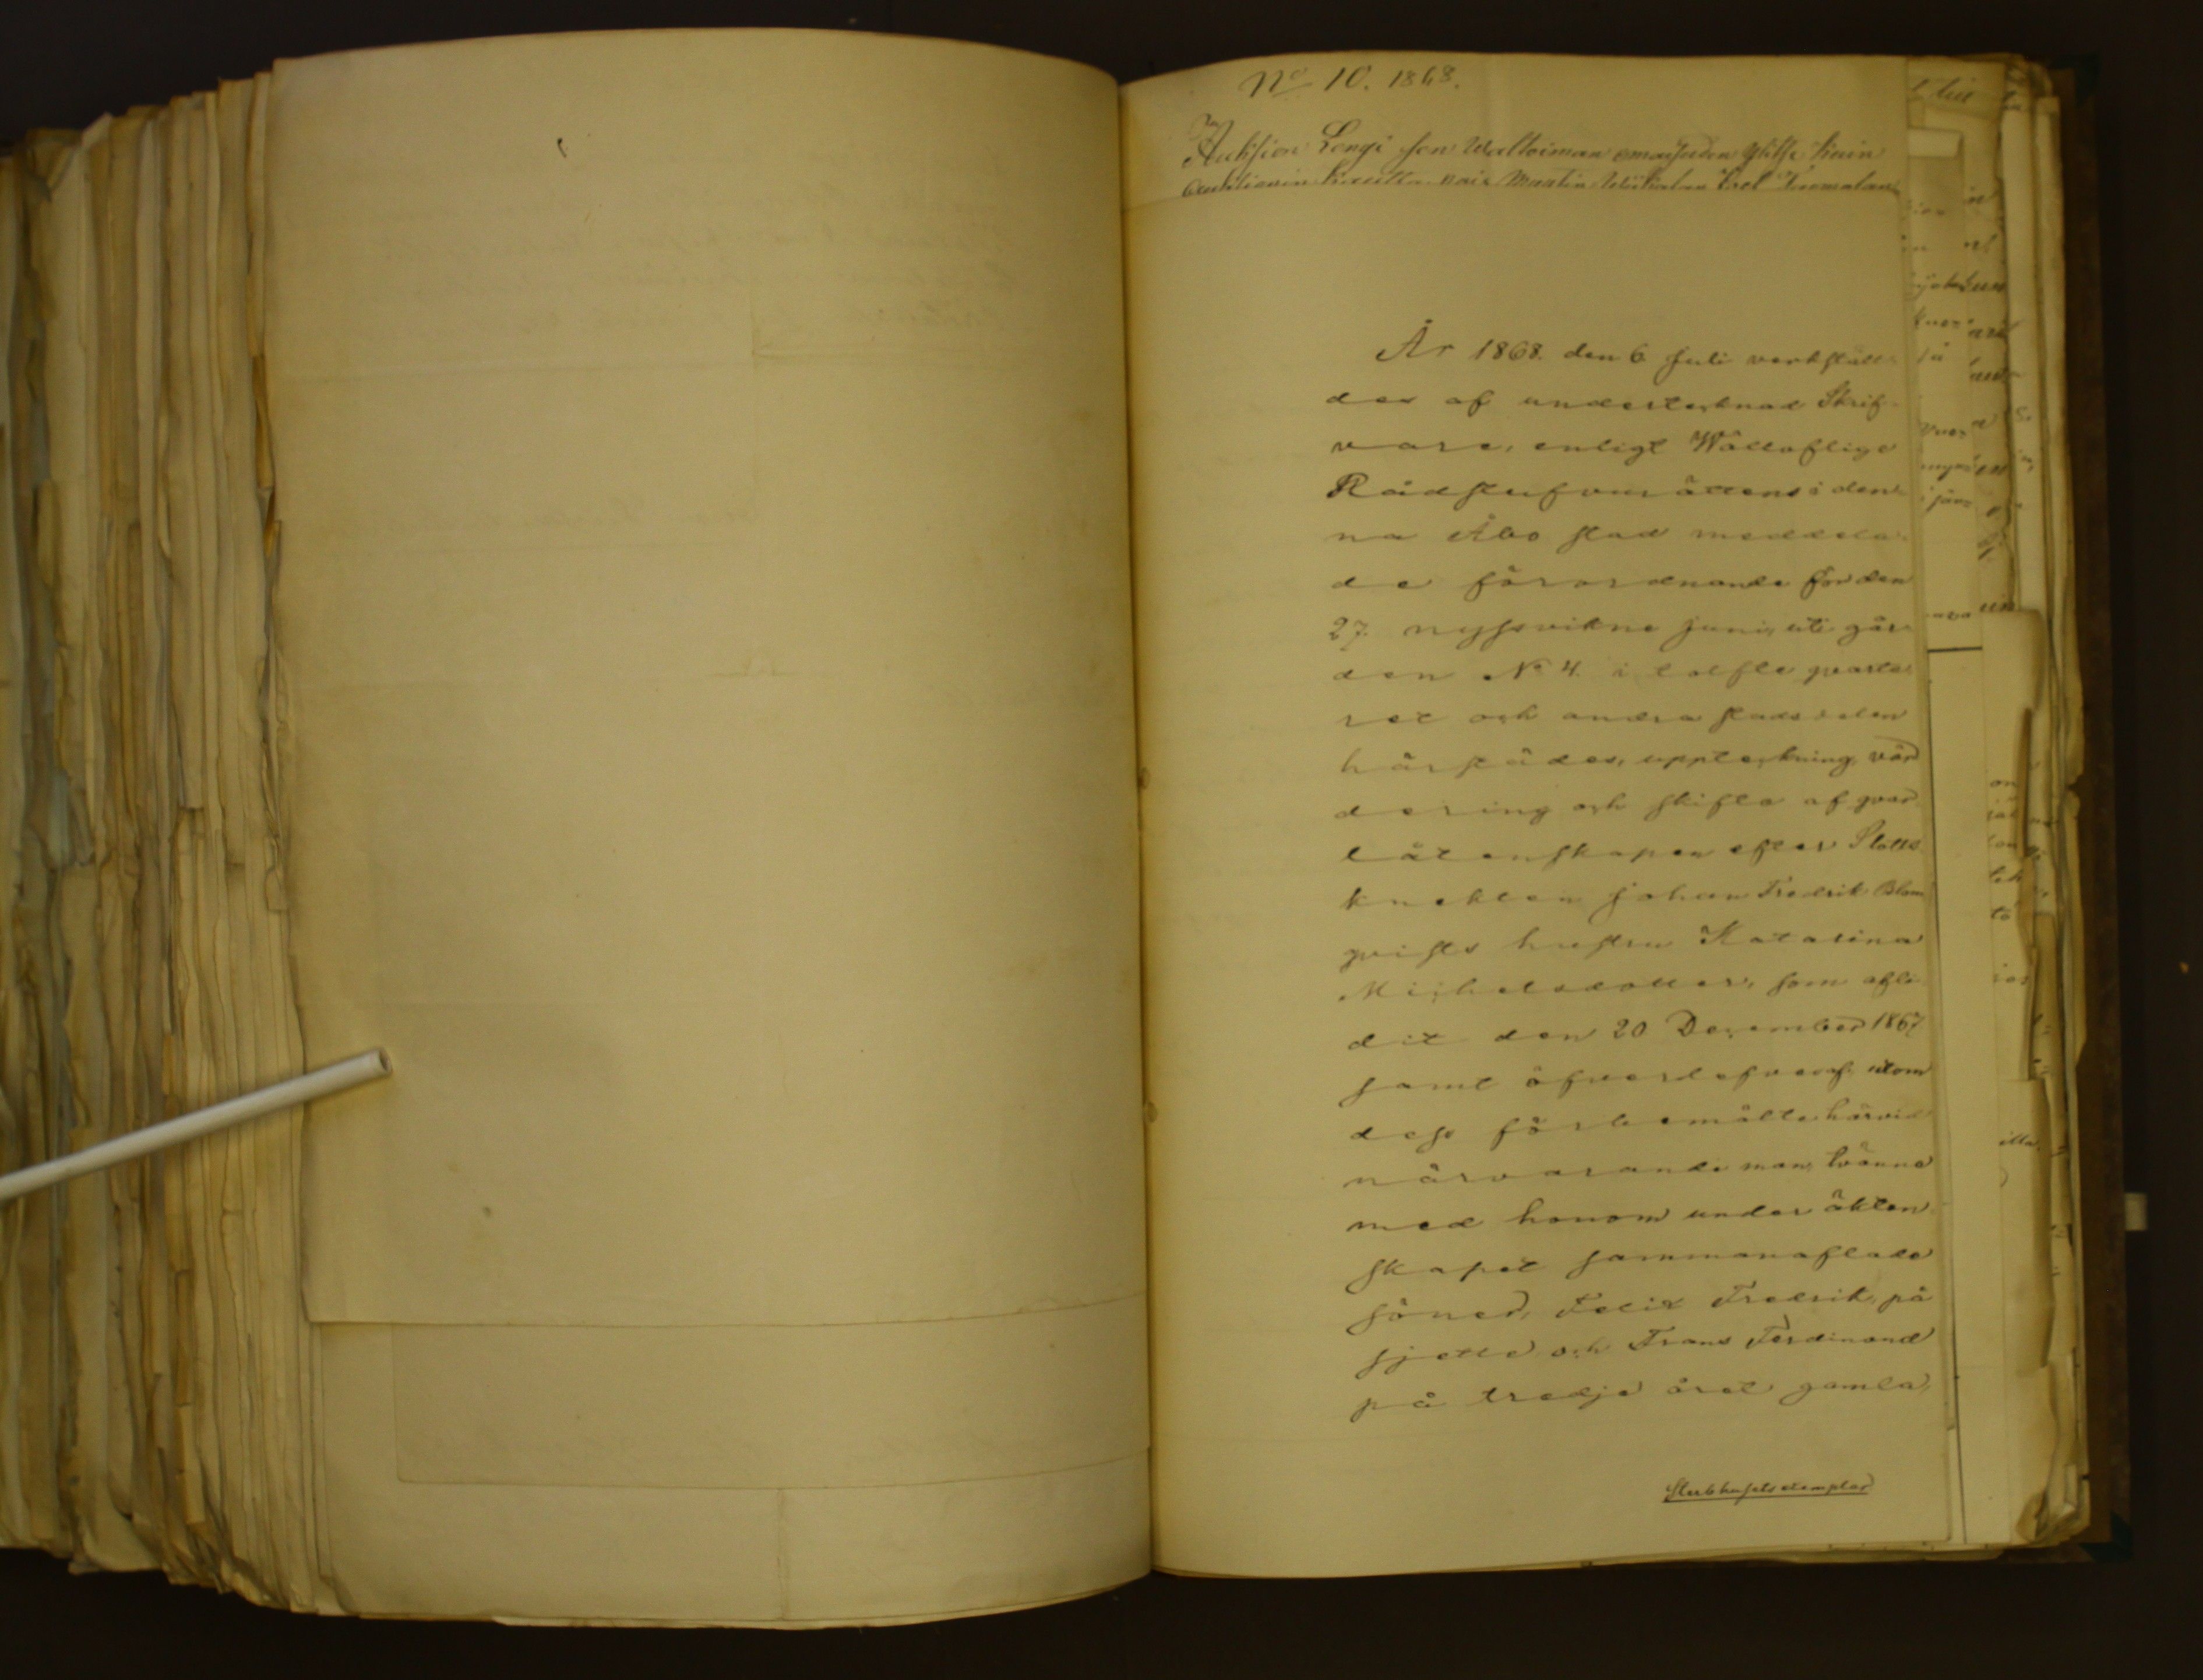 No 10. 1868.
År 1868. den 6 Juli verkställ-
des af undertecknad Skrif-
vare, enligt Wälloflige
Rådstufvurättens i den-
na Åbo stad meddela-
de förordnande för den
27. nyssvikne Juni, uti går-
den No 4. i tolfte qvarte-
ret och andra stadsdelen
härstädes, uppteckning, vär-
dering och skifte af qvar-
låtenskapen efter Slotts
knekten Johan Fredrik Blom
qvists hustru Katarina
Michelsdotter, som afli-
dit den 20 December 1867
samt öfverlefves af, utom
dess förbemälte härvid
närvarande man, tvänne
med honom under äkten
skapet sammanaflade
söner, Felix Fredrik, på
sjette och Frans Ferdinand
på tredje året gamla,
Sterbhusets exemplar